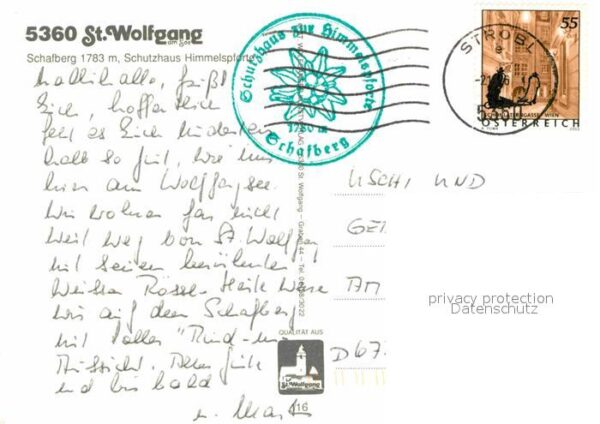 5360 St. Wolfgang
am See
Schafberg 1783 m, Schutzhaus Himmelspforte
Schutzhaus zur Himmelspforte
1780 m
Schafberg
STROBL
55
ÖSTERREICH
hallihallo,
Euch, hoffentlich
geht es Euch mindestens
halb so gut, wie uns
hier am Wolfgangsee.
Wir wohnen gar nicht
weit weg von St. Wolfgang
mit seinem berühmten
Weissen Rössel. Heute waren
wir auf dem Schafberg
mit toller "Rund-um
Aussicht. Alles Gute
und bis bald
USCHI UND
GE
AM
D 67
QUALITÄT AUS
St. Wolfgang
416
privacy protection
Datenschutz